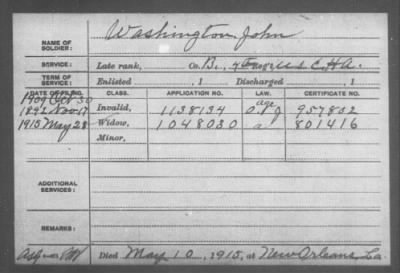 Washington, John
NAME OF SOLDIER:
SERVICE: Late rank, Co. B., 4 Reg't U S C H A.
TERM OF SERVICE: Enlisted , 1 Discharged , 1
DATE OF FILING. CLASS. APPLICATION NO. LAW. CERTIFICATE NO.
1909 Oct 30 age
1892 Nov 17 Invalid, 1138134 957832
1915 May 28 Widow, 1048030 801416
Minor,
ADDITIONAL SERVICES:
REMARKS:
Died May 10, 1915, at New Orleans La